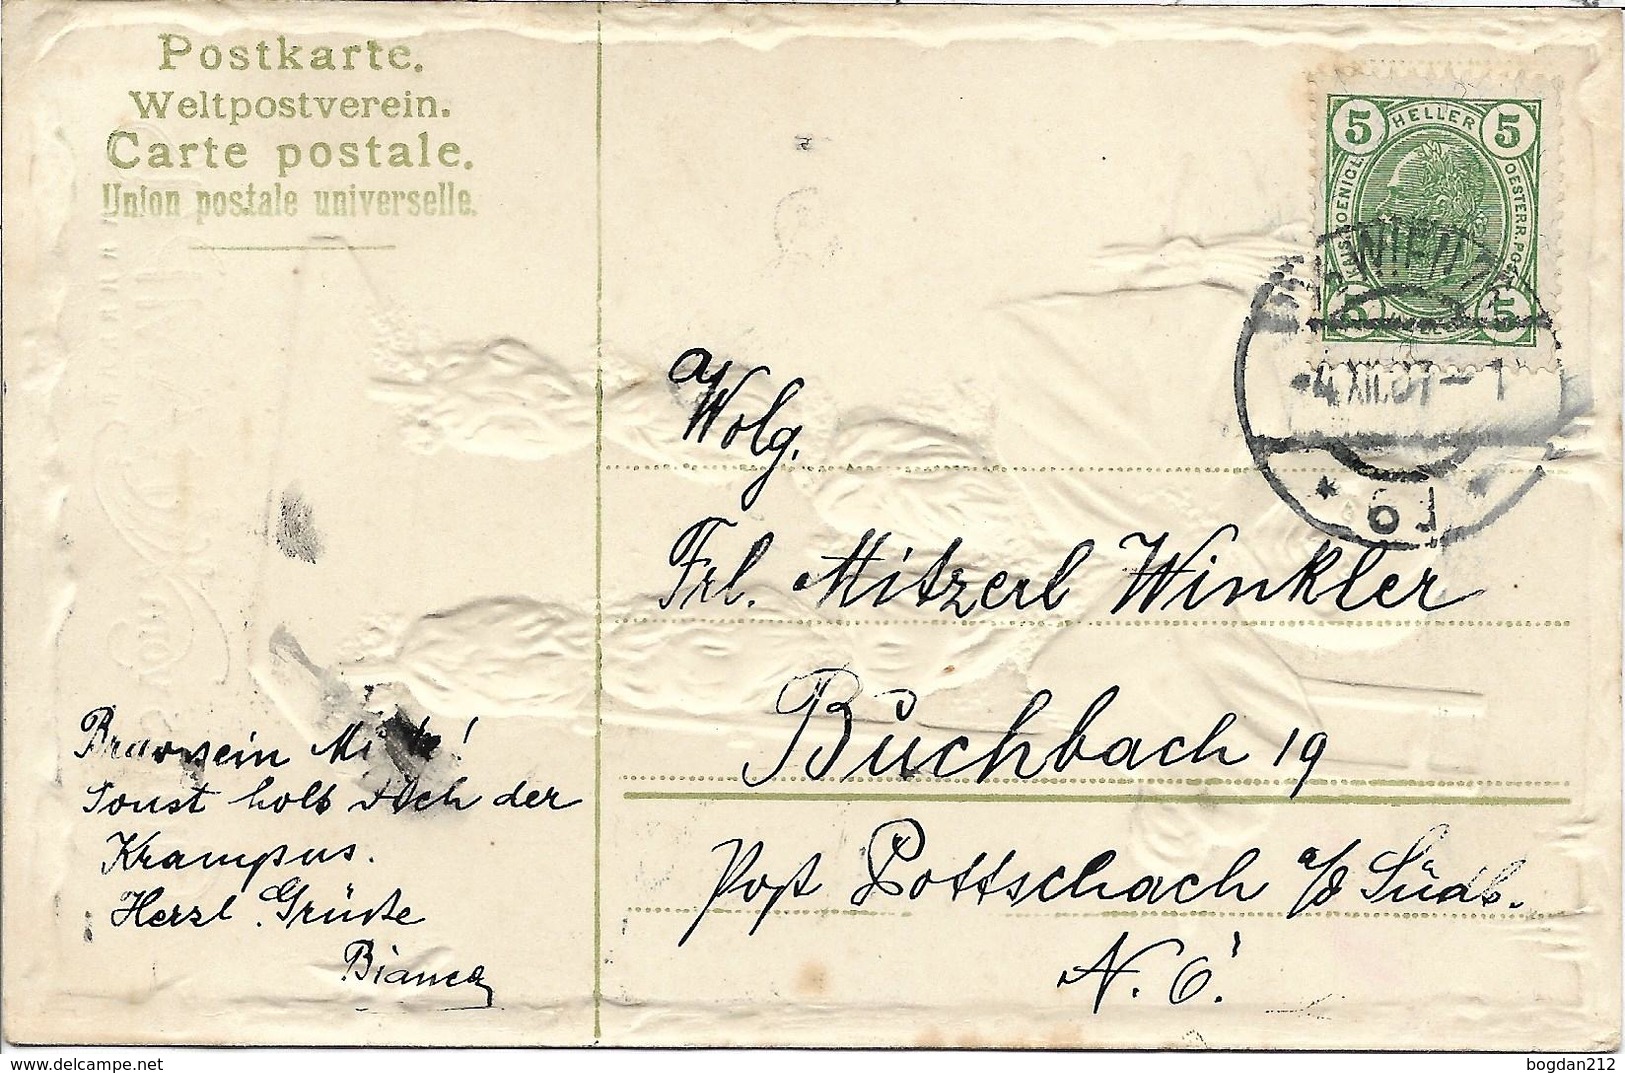 Postkarte.
Weltpostverein.
Carte postale.
Union postale universelle.
5 HELLER 5
OESTERR. POST
5 5
WIEN
4 XII 07 - 1
* 61 *
Wolg.
Frl. Mitzerl Winkler
Buchbach 19
Post Pottschach a/d Südb.
N. Ö.
Bravsein
Sonst holt Dich der
Krampus.
Herzl. Grüße
Bianca
delcampe.net
bogdan212